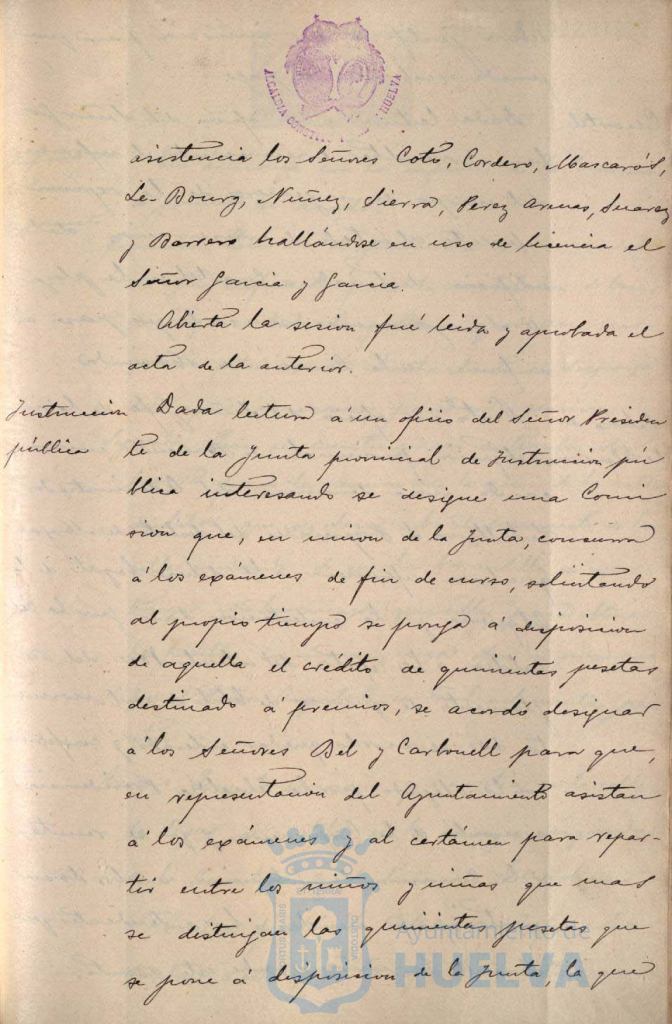 ALCALDIA CONSTI HUELVA
asistencia los Señores Coto, Cordero, Mascarós,
Le-Bourg, Nuñez, Sierra, Perez Arenas, Suarez
y Borrero hallándose en uso de licencia el
Señor Garcia y Garcia.
Abierta la sesion fué leida y aprobada el
acta de la anterior.
Instruccion
pública
Dada lectura á un oficio del Señor Presiden
te de la Junta provincial de Instruccion pú
blica interesando se designe una Comi
sion que, en union de la Junta, concurra
á los exámenes de fin de curso, solicitando
al propio tiempo se ponga á disposicion
de aquella el crédito de quinientas pesetas
destinado á premios, se acordó designar
á los Señores Bel y Carbonell para que,
en representacion del Ayuntamiento asistan
á los exámenes y al certámen para repar-
tir entre los niños y niñas que mas
se distingan las quinientas pesetas que
se pone á disposicion de la Junta, la que
Ayuntamiento de
HUELVA